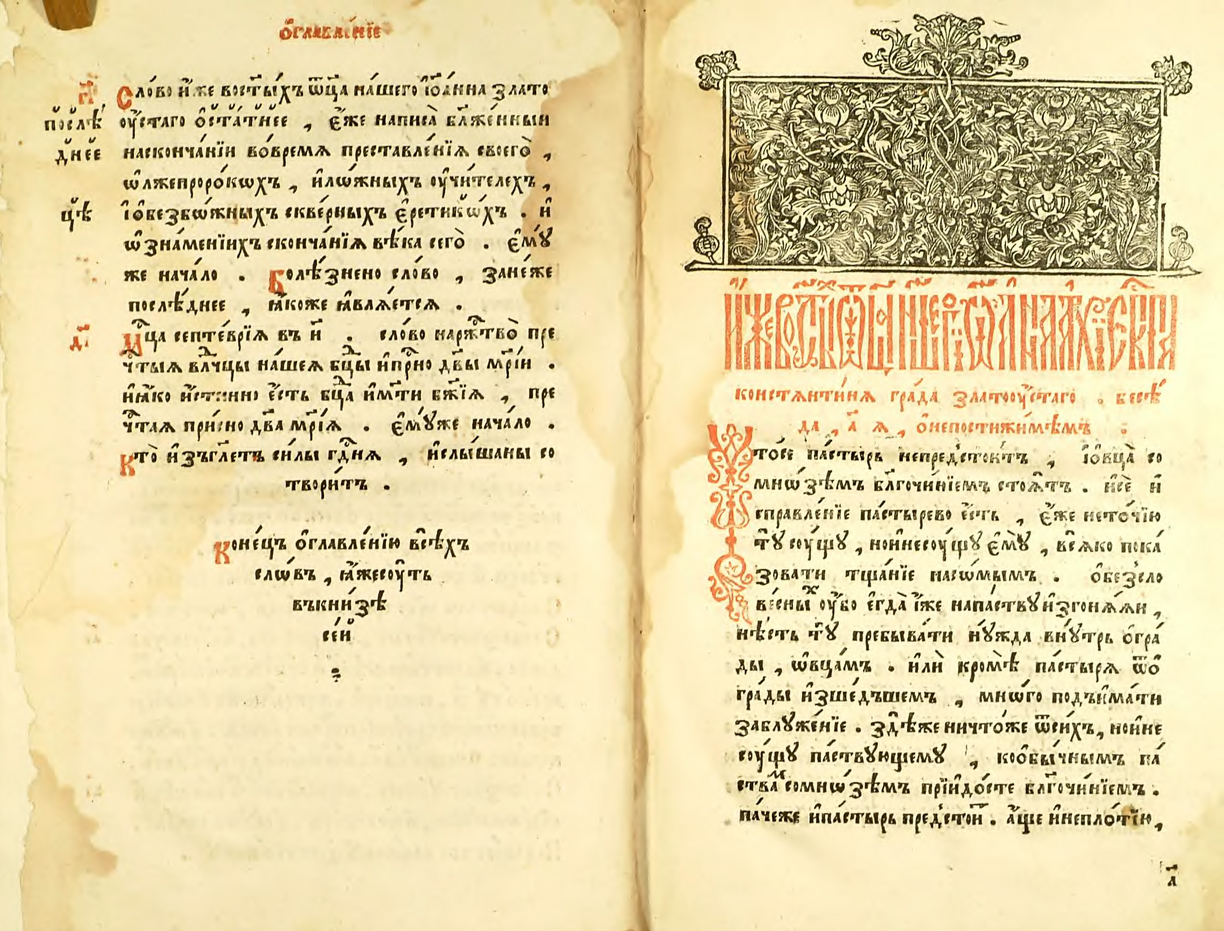 ѻ҆главле́нїе
Сло́во и҆́же во ст҃ы́хъ ѿц҃а на́шего і҆ѡа́нна злато
ѹ҆́стаго ѻ҆ста́тнее , є҆́же написа̀ бл҃же́нныи
насконча́нїи вовремѧ преставле́нїѧ своегѡ̀ ,
послѣ́
днее
ѡ҆лжепроро́кѡхъ , и҆ло́жныхъ ѹ҆чи́телехъ ,
і҆ѻ҆безбо́жныхъ скве́рныхъ є҆ретикѡ́хъ . и҆
ѡ҆зна́менїихъ сконча́нїѧ вѣ́ка сегѡ̀ . є҆мꙋ
же нача́ло . Болѣ́знено сло́во , зане́же
послѣ́днее , ꙗ҆́коже ꙗ҆влѧ́етсѧ .
Мц҃а септе́врїѧ въ и҃ . сло́во нарж҇тво̀ пре
чⷭ҇тыѧ влⷣчцы на́шеѧ бцⷣы и҆прⷭ҇но дв҃ы мр҃і́и .
и҆ꙗ҆́ко и҆́стинно є҆́сть бцⷣа и҆мт҃и бж҃їѧ , пре
чⷭ҇таѧ при́сно дв҃а мр҃і́ѧ . є҆мꙋ́же нача́ло .
Кто̀ и҆зъгл҃етъ си́лы гдⷭ҇нѧ , и҆слы́шаны со
твори́тъ .
Коне́цъ ѻ҆главле́нїю всѣ́хъ
сло́въ , ꙗ҆́жесѹ́ть
въкни́зѣ
се́й
И҆́же во ст҃ы́хъ ѿц҃а на́шегѡ і҆ѡа́нна а҆рхїепⷭ҇кпа
константи́нѧ гра́да златоѹ́стаго . бесѣ́
да , а҃ ѧ , ѻ҆непостижи́мѣмъ .
Что̀се па́стырь непредстои́тъ , і҆ѻ҆вца̀ со
мно́зѣмъ бл҃гочи́нїемъ стоѧ́тъ . и҆сѐ и҆
справле́нїе па́стырево є҆́сть , є҆́же нето́чїю
тꙋ сѹ́щꙋ , нои҆несѹ́щꙋ є҆мꙋ̀ , всѧ́ко пока
зовати тща́нїе пасо́мымъ . ѻ҆безсло
ве́сныхъ ѹ҆́бо є҆гда̀ и҆́же напа́ствꙋ и҆згонѧ́ѧи ,
нѣ́сть тꙋ̀ пребыва́ти нꙋ́жда внꙋ́трь ѻ҆гра́
ды , ѻ҆вца́мъ . и҆лѝ кромѣ̀ па́стырѧ ѿѻ
гра́ды и҆зше́дъшемъ , мно́го подъима́ти
заблꙋжде́нїе . здѣ́же ничто́же ѿси́хъ , нои҆не
сѹ́щꙋ па́ствꙋющемꙋ , коѻбы́чнымъ па
ства́м сомно́зѣмъ прїидо́сте бл҃гочи́нїемъ .
па́чеже и҆па́стырь предстои́т . а҆́ще и҆непло́тїю ,
а҃